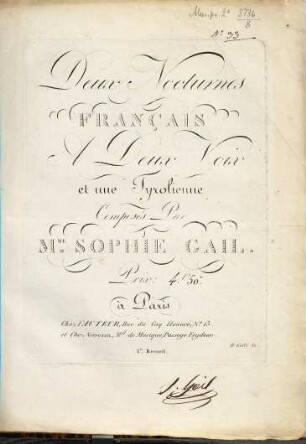 Mus.pr. 2° 5736
N° 33
Deux Nocturnes
FRANÇAIS
A Deux Voix
et une Tyrolienne
Composés Par
Me. SOPHIE GAIL.
Prix: 4f 50c
à Paris
Chez l'AUTEUR, Rue du Gay N° 15.
et Chez Md. de Musique, Passage Feydeau
1er. Recueil
S. Gail